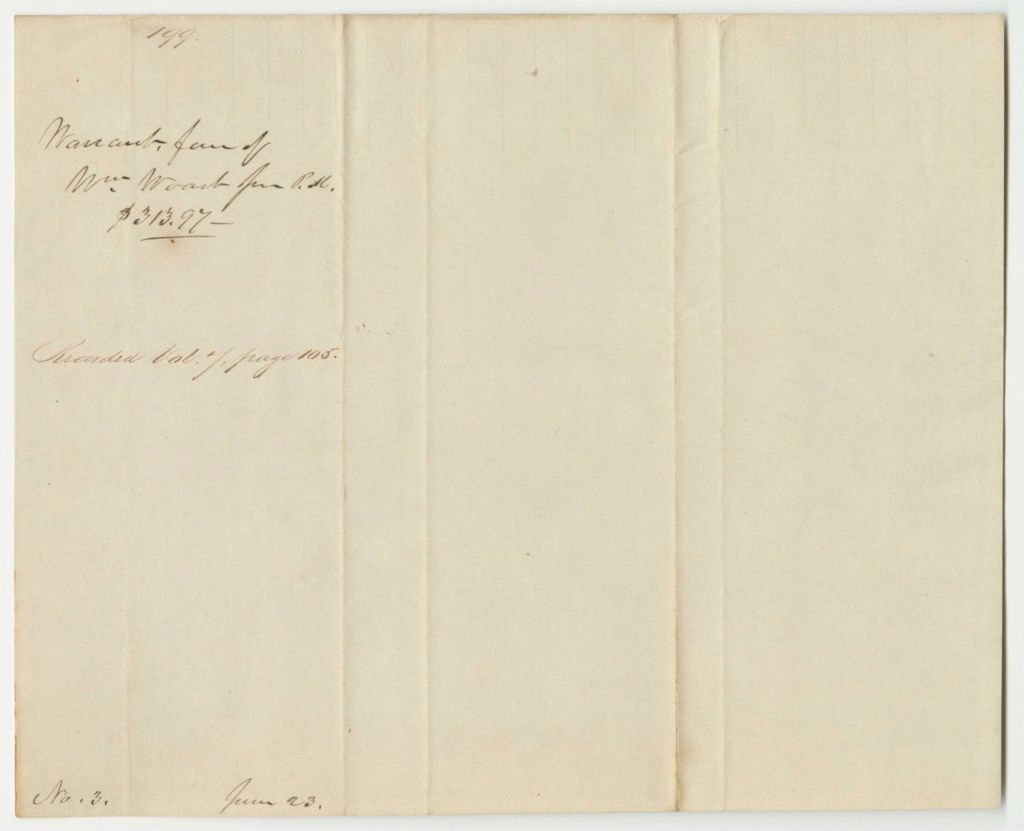 199.
Warrant, favr of
Wm. Woart Jun P.M.
$313.97—
Recorded Vol. 7, page 105.
No. 3. June 23.